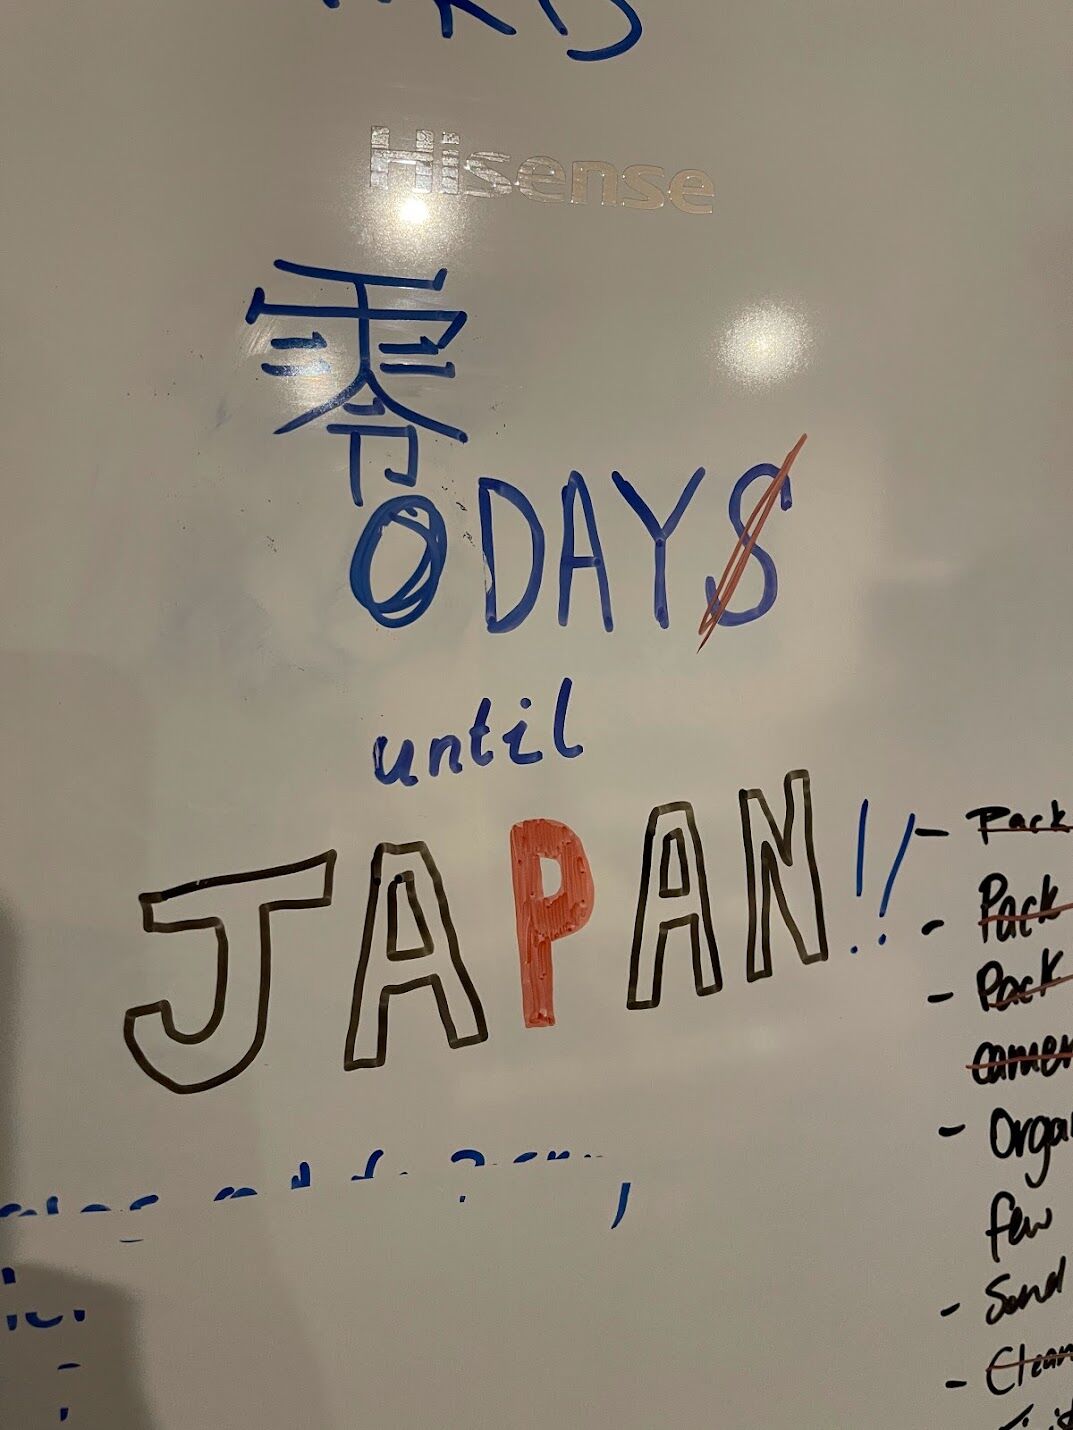 Hisense
零
0 DAYS
until
JAPAN!!
- Pack
- Pack
- Pack
- Organ
few
- Send
- Clean